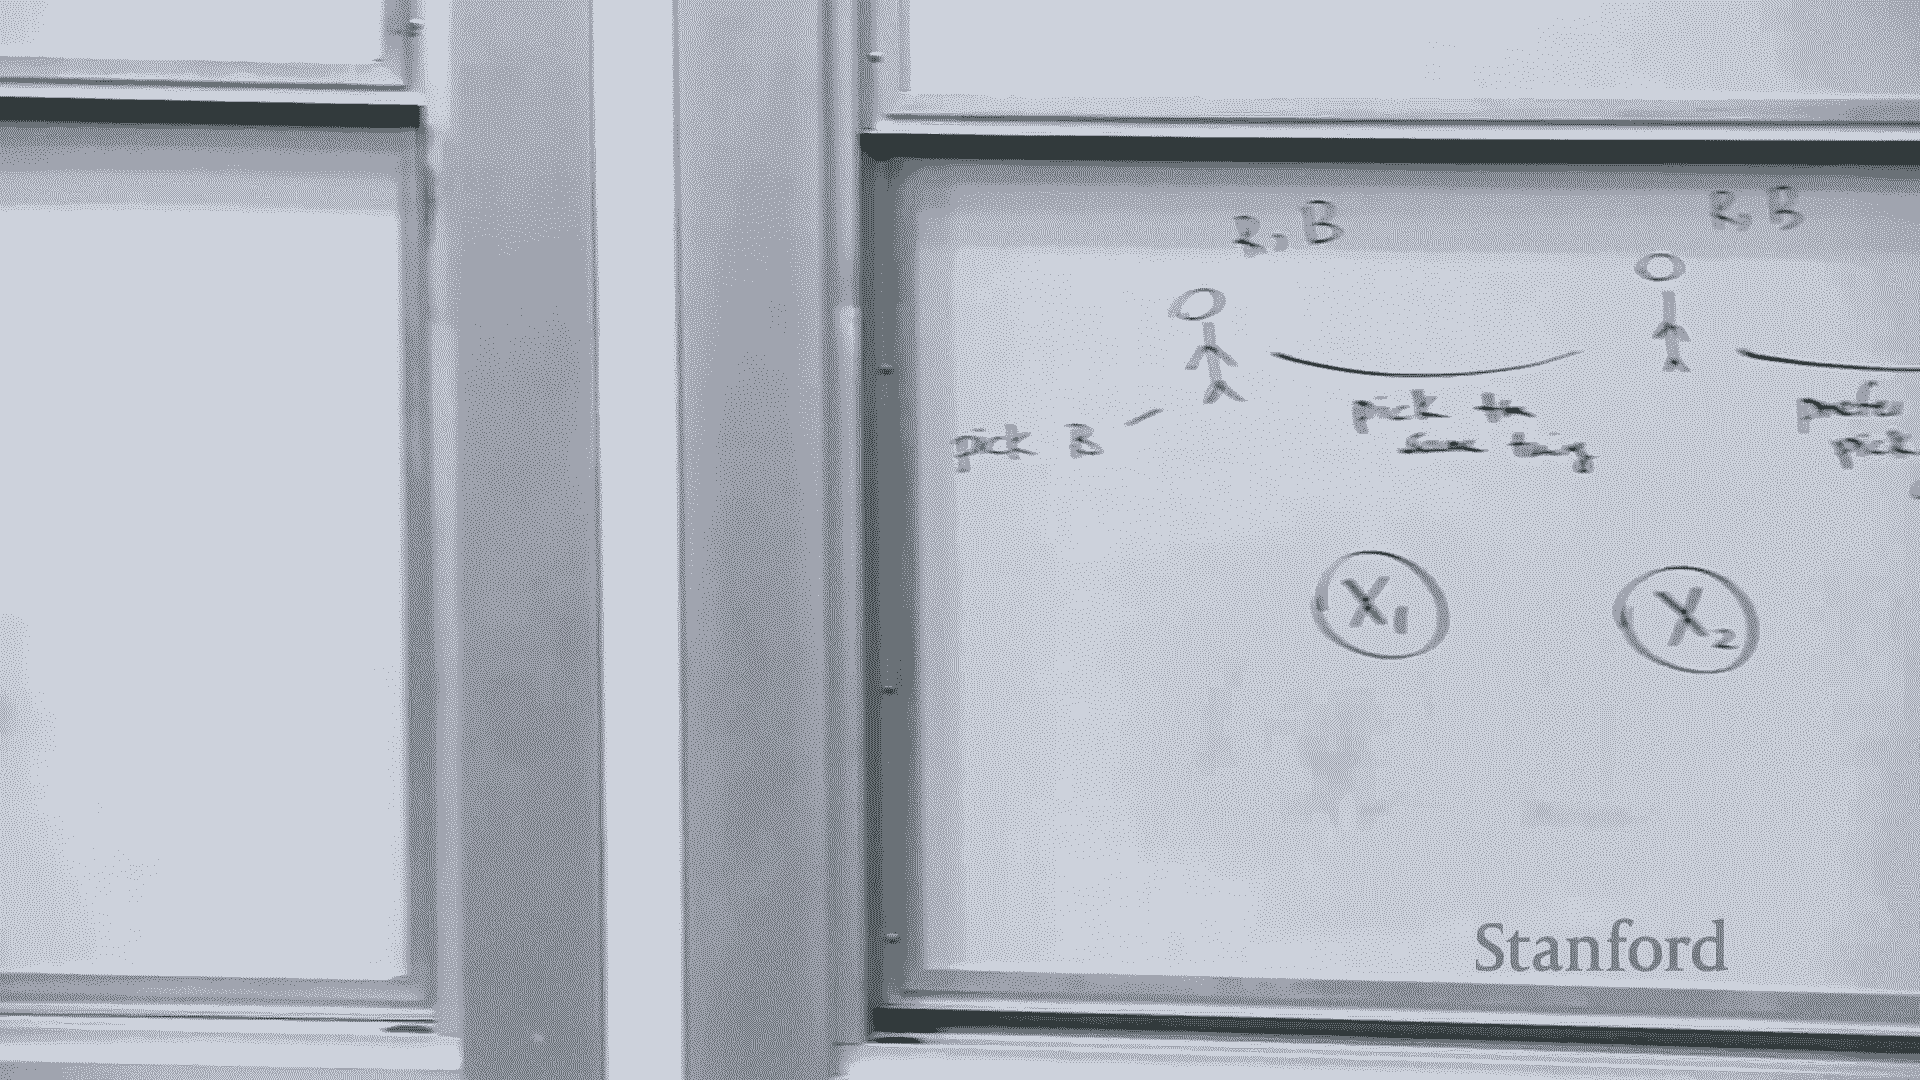 R, B
R, B
pick B
pick the
same thing
prefer
pick
X1
X2
Stanford